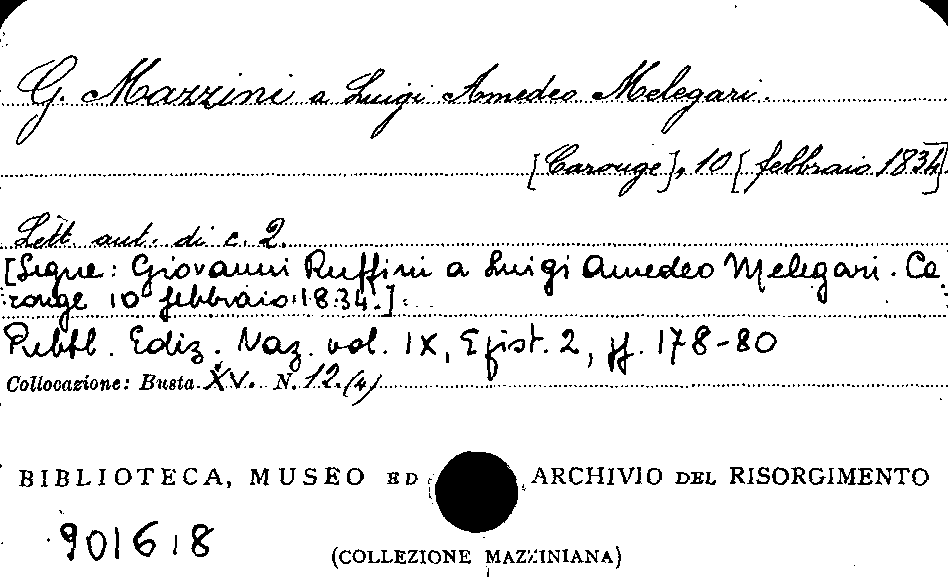 G. Mazzini a Luigi Amedeo Melegari.
[Carouge], 10 [febbraio 1834]
Lett. aut. di c. 2.
[Segue: Giovanni Ruffini a Luigi Amedeo Melegari. Ca
rouge 10 febbraio 1834.]
Pubbl. Ediz. Naz. vol. IX, Epist. 2, pp. 178-80
Collocazione: Busta XV. N. 12.(4)
BIBLIOTECA, MUSEO ED ARCHIVIO DEL RISORGIMENTO
901618
(COLLEZIONE MAZZINIANA)